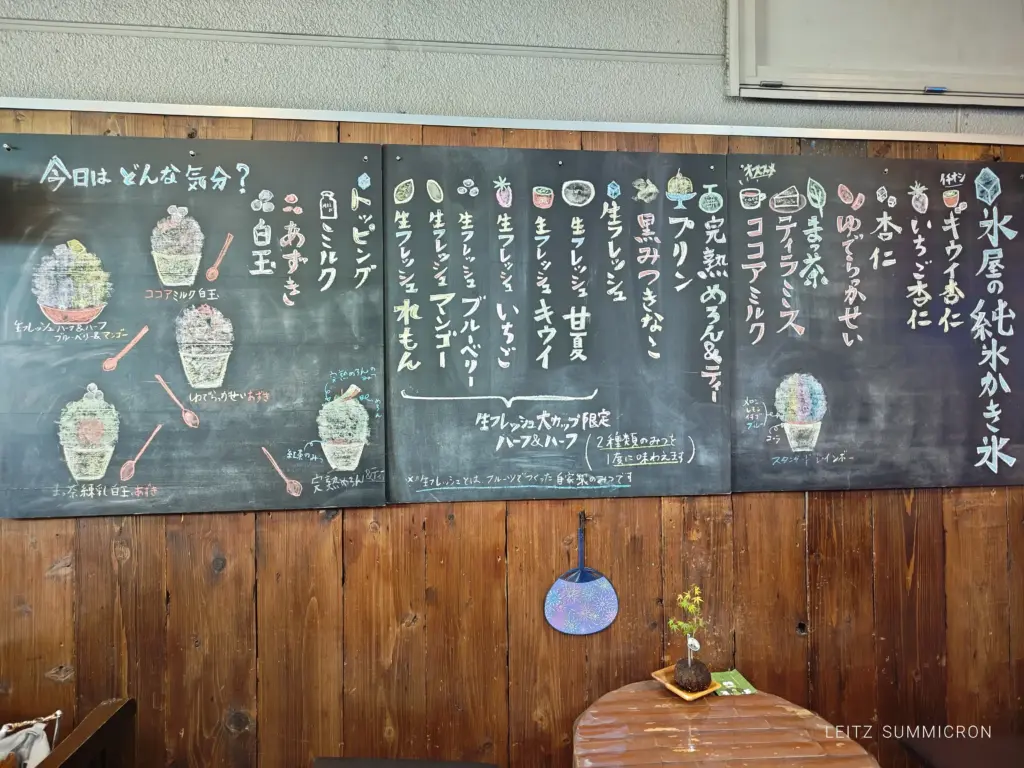 氷屋の純氷かき氷
イチオシ
キウイ杏仁
いちご杏仁
杏仁
ゆでらっかせい
まっ茶
ティラミス
オススメ
ココアミルク
スタンダードレインボー
完熟めろん&ティー
プリン
黒みつきなこ
生フレッシュ
生フレッシュ 甘夏
生フレッシュ キウイ
生フレッシュ いちご
生フレッシュ ブルーベリー
生フレッシュ マンゴー
生フレッシュ れもん
生フレッシュ大カップ限定
ハーフ&ハーフ
(2種類のみつを
1度に味わえます)
※生フレッシュとは フルーツでつくった自家製のみつです
トッピング
ミルク
あずき
白玉
今日は どんな気分?
ココアミルク白玉
生フレッシュハーフ&ハーフ
ブルーベリー&マンゴー
ゆでらっかせいあずき
まっ茶練乳白玉あずき
完熟めろんのみつ
紅茶のみつ
完熟めろん&ティー
LEITZ SUMMICRON